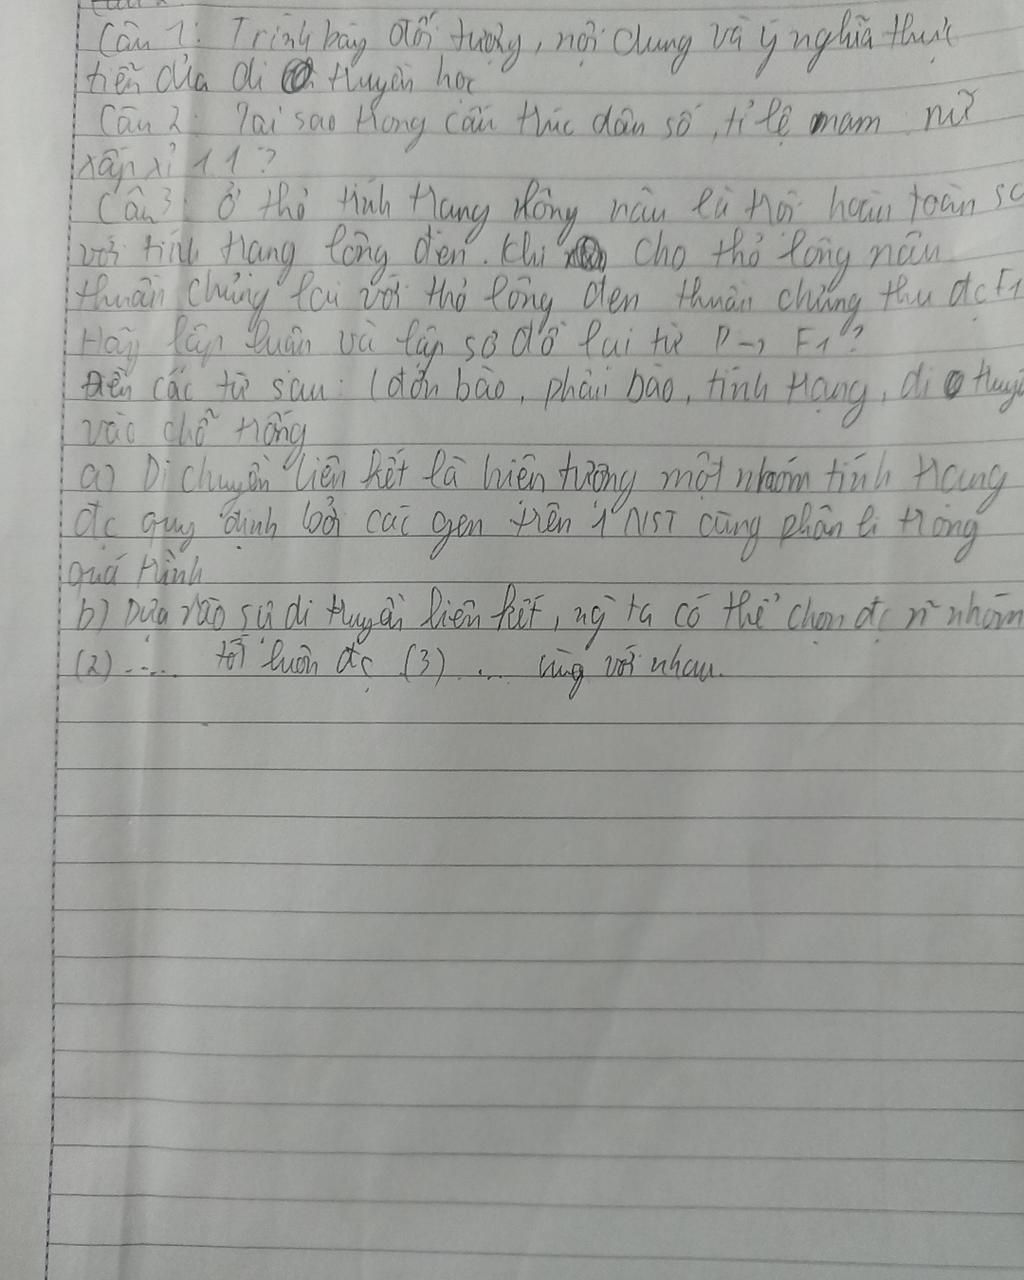 Câu 1: Trình bày đối tượng, nội dung và ý nghĩa thực
tiễn của di truyền học
Câu 2: Tại sao trong cấu trúc dân số, tỉ lệ nam nữ
xấp xỉ 1 1 ?
Câu 3: Ở thỏ tính trạng lông nâu là trội hoàn toàn so
với tính trạng lông đen. Khi cho thỏ lông nâu
thuần chủng lai với thỏ lông đen thuần chủng thu đc F1
Hãy lập luận và lập sơ đồ lai từ P → F1 ?
Điền các từ sau: (đơn bào, phân bào, tính trạng, di truyề
vào chỗ trống
a) Di chuyền liên kết là hiện tượng một nhóm tính trạng
đc quy định bởi các gen trên 1 NST cùng phân li trong
quá trình
b) Dựa vào sự di truyền liên kết, ng ta có thể chọn đc n~ nhóm
(2) .... tốt luôn đc (3) ... cùng với nhau.